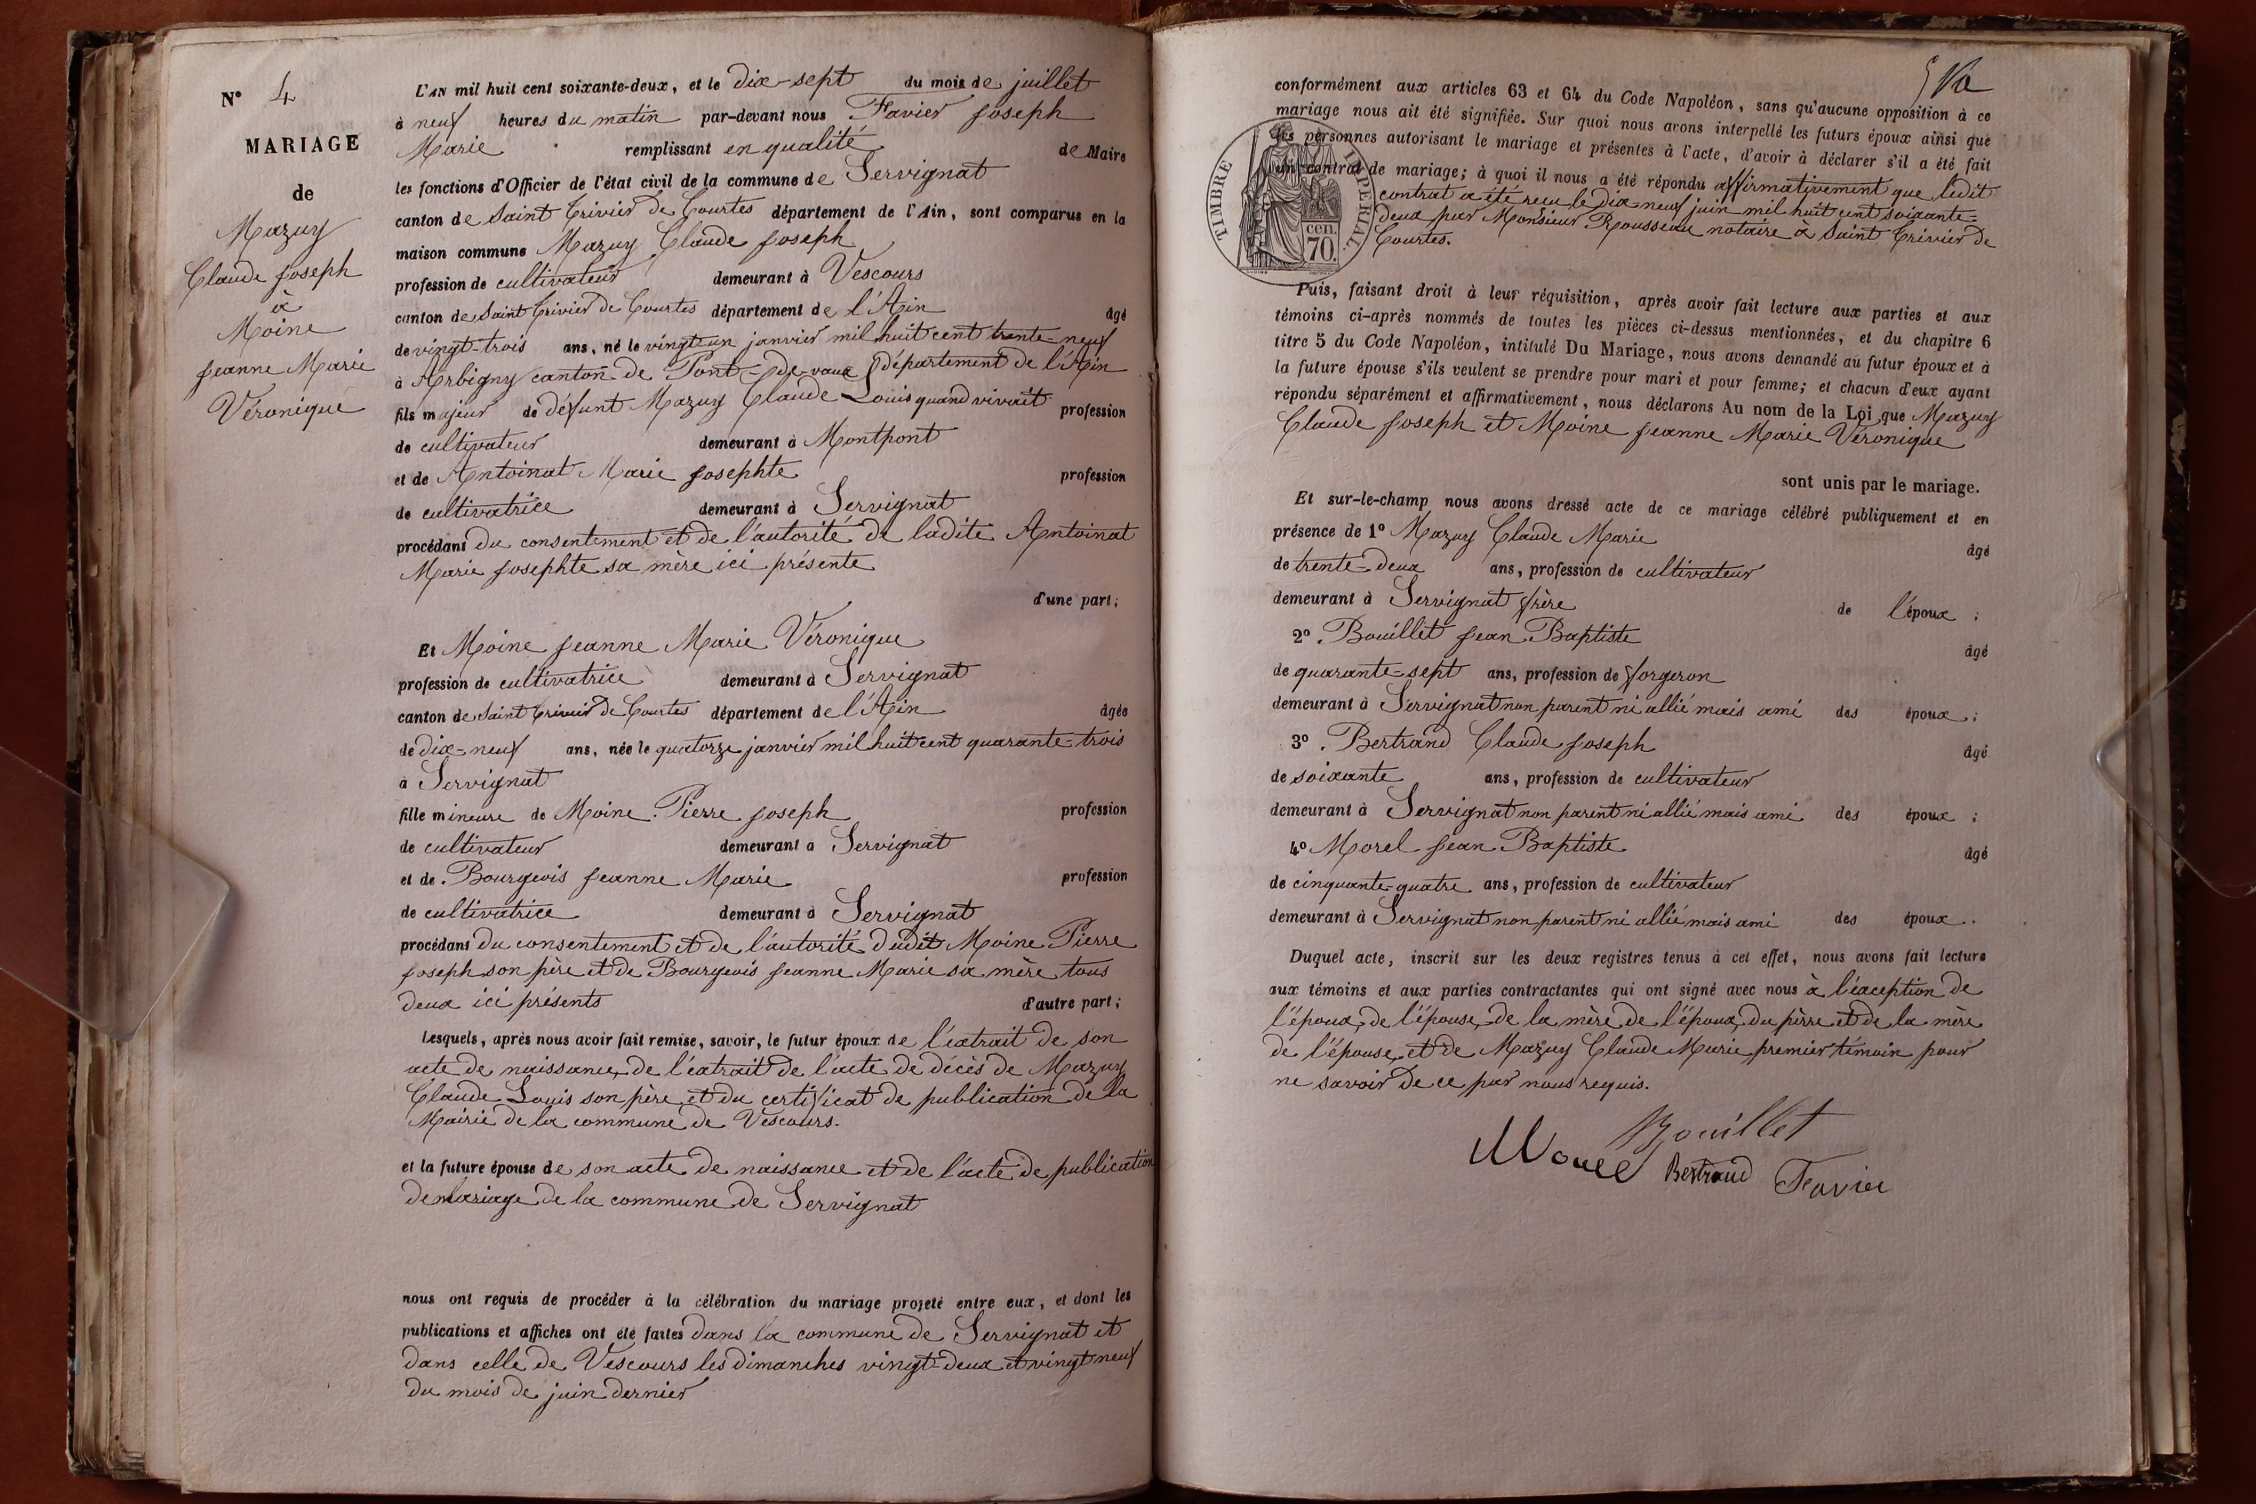 N° 4
MARIAGE
de
Mazuy
Claude Joseph
à
Moine
Jeanne Marie
Véronique
L'AN mil huit cent soixante-deux, et le dix-sept du mois de juillet
à neuf heures du matin par-devant nous Favier Joseph
Marie remplissant en qualité de Maire
les fonctions d'Officier de l'état civil de la commune de Servignat
canton de Saint Trivier de Courtes département de l'Ain, sont comparus en la
maison commune Mazuy Claude Joseph
profession de cultivateur demeurant à Vescours
canton de Saint Trivier de Courtes département de l'Ain âgé
de vingt-trois ans, né le vingt un janvier mil huit cent trente-neuf
à Arbigny canton de Pont-de-vaux département de l'Ain
fils majeur de défunt Mazuy Claude Louis quand vivait profession
de cultivateur demeurant à Montpont
et de Antoinat Marie Josephte profession
de cultivatrice demeurant à Servignat
procédant du consentement et de l'autorité de ladite Antoinat
Marie Josephte sa mère ici présente
d'une part;
Et Moine Jeanne Marie Véronique
profession de cultivatrice demeurant à Servignat
canton de Saint Trivier de Courtes département de l'Ain âgée
de dix-neuf ans, née le quatorze janvier mil huit cent quarante-trois
à Servignat
fille mineure de Moine Pierre Joseph profession
de cultivateur demeurant à Servignat
et de Bourgeois Jeanne Marie profession
de cultivatrice demeurant à Servignat
procédant du consentement et de l'autorité dudit Moine Pierre
Joseph son père et de Bourgeois Jeanne Marie sa mère tous
deux ici présents d'autre part;
Lesquels, après nous avoir fait remise, savoir, le futur époux de l'extrait de son
acte de naissance, de l'extrait de l'acte de décès de Mazuy
Claude Louis son père et du certificat de publication de la
Mairie de la commune de Vescours.
et la future épouse de son acte de naissance et de l'acte de publication
de mariage de la commune de Servignat
nous ont requis de procéder à la célébration du mariage projeté entre eux, et dont les
publications et affiches ont été faites dans la commune de Servignat et
dans celle de Vescours les dimanches vingt-deux et vingt neuf
du mois de juin dernier
conformément aux articles 63 et 64 du Code Napoléon, sans qu'aucune opposition à ce
mariage nous ait été signifiée. Sur quoi nous avons interpellé les futurs époux ainsi que
les personnes autorisant le mariage et présentes à l'acte, d'avoir à déclarer s'il a été fait
un contrat de mariage; à quoi il nous a été répondu affirmativement que ledit
contrat a été reçu le dix-neuf juin mil huit cent soixante-
deux par Monsieur Rousseau notaire à Saint Trivier de
Courtes.
TIMBRE IMPERIAL
70 cen.
Puis, faisant droit à leur réquisition, après avoir fait lecture aux parties et aux
témoins ci-après nommés de toutes les pièces ci-dessus mentionnées, et du chapitre 6
titre 5 du Code Napoléon, intitulé Du Mariage, nous avons demandé au futur époux et à
la future épouse s'ils veulent se prendre pour mari et pour femme; et chacun d'eux ayant
répondu séparément et affirmativement, nous déclarons Au nom de la Loi que Mazuy
Claude Joseph et Moine Jeanne Marie Véronique
sont unis par le mariage.
Et sur-le-champ nous avons dressé acte de ce mariage célébré publiquement et en
présence de 1° Mazuy Claude Marie âgé
de trente-deux ans, profession de cultivateur
demeurant à Servignat frère de l'époux;
2°. Bouillet Jean Baptiste âgé
de quarante-sept ans, profession de forgeron
demeurant à Servignat non parent ni allié mais ami des époux;
3°. Bertrand Claude Joseph âgé
de soixante ans, profession de cultivateur
demeurant à Servignat non parent ni allié mais ami des époux;
4° Morel Jean Baptiste âgé
de cinquante-quatre ans, profession de cultivateur
demeurant à Servignat non parent ni allié mais ami des époux.
Duquel acte, inscrit sur les deux registres tenus à cet effet, nous avons fait lecture
aux témoins et aux parties contractantes qui ont signé avec nous à l'exception de
l'époux, de l'épouse, de la mère de l'époux, du père et de la mère
de l'épouse et de Mazuy Claude Marie premier témoin pour
ne savoir de ce par nous requis.
Bouillet
Bertrand Favier